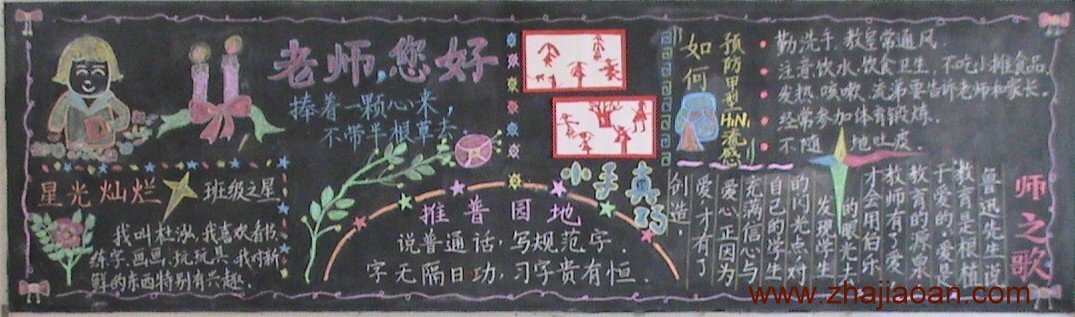 老师,您好
捧着一颗心来,
不带半根草去.
星光灿烂 班级之星
我叫杜泓,我喜欢看书、
练字、画画、玩玩具、我对新
鲜的东西特别有兴趣.
推普园地
说普通话,写规范字.
字无隔日功,习字贵有恒.
小手真巧
如何
预防甲型
H1N1流感
勤洗手,教室常通风.
注意饮水,饮食卫生,不吃小摊食品.
发热、咳嗽、流涕要告诉老师和家长.
经常参加体育锻炼.
不随地吐痰.
师之歌
鲁迅先生说
教育是根植
于爱的,爱是
教育的源泉
教师有了爱
才会用伯乐
的眼光去
发现学生
的闪光点,对
自己的学生
充满信心与
爱心正因为
爱,才有了
创造,
www.zhajiaoan.com